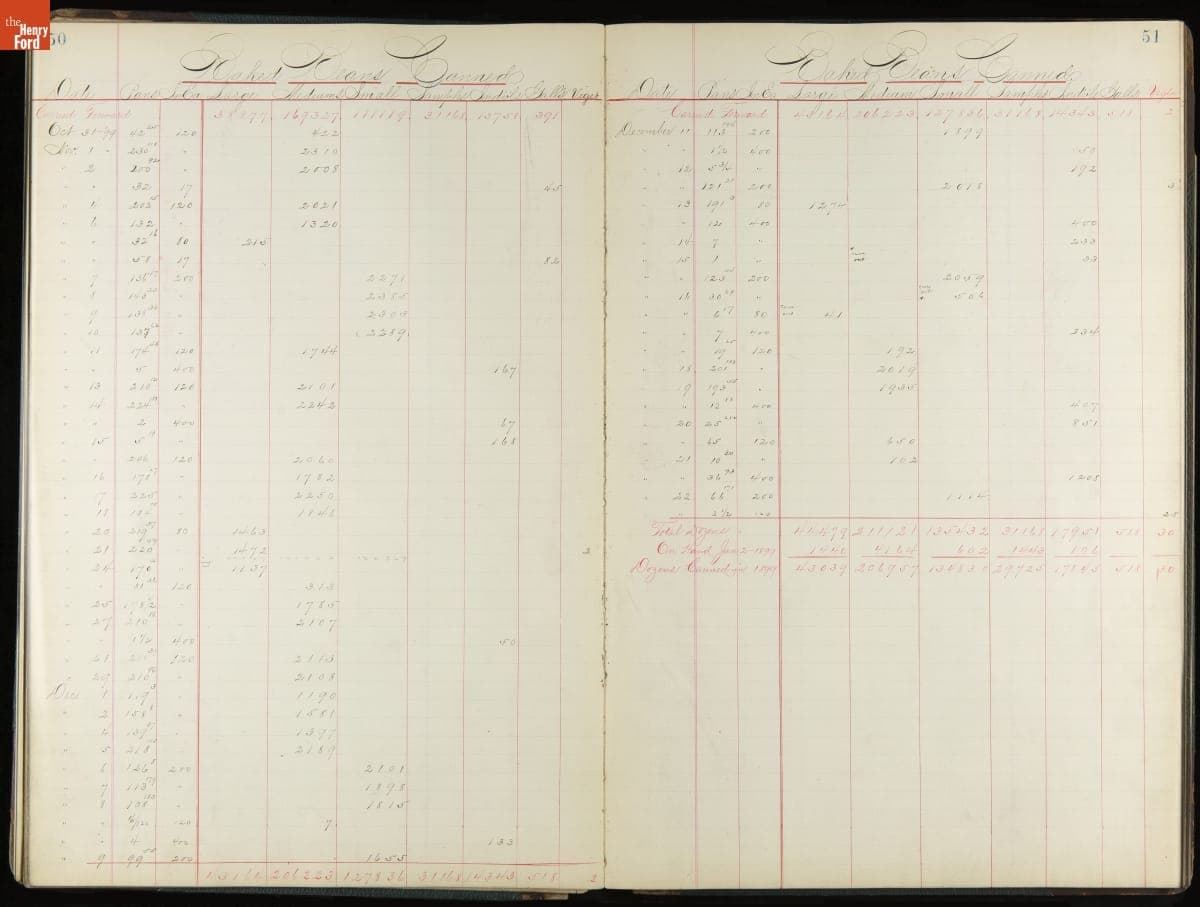 the Henry Ford
50
Baked Beans Canned
Date Pans In Ca Large Mediums Small Samples Individ. Gall's
Carried Forward 169327 111119 31168 13758 391
Oct 31-99 42 120 422
Nov. 1 - 230 " 2310
" 2 200 " 2008
" " 32 17 45
" 4 202 120 2021
" 6 132 " 1320
" " 32 80 215
" " 58 17 82
" 7 136 200 2271
" 8 143 " 2385
" 9 138 " 2303
" 10 137 " 2289
" 11 174 120 1744
" " 5 400 167
" 13 210 120 2101
" 14 224 " 2242
" " 2 400 67
" 15 5 " 168
" " 206 120 2060
" 16 178 " 1782
" 17 225 " 2250
" 18 184 " 1846
" 20 219 80 1463
" 21 220 " 1472 2
" 24 170 " 1137
" " 31 120 313
" 25 178½ " 1785
" 27 210 " 2107
" " 1½ 400 50
" 120 2163
" 210 " 2108
Dec 1 119 " 1190
" 2 158 " 1581
" 4 139 " 1397
" 5 218 " 2189
" 6 126 200 2101
" 7 113 " 1898
" 8 108 " 1815
" " 7
" " 4 400 133
" 9 99 200 1655
43164 206223 127836 31168 14343 518 2
51
Baked Beans Canned
Date Pans In Ca Large Mediums Small Samples Individ. Galls
Carried Forward 43164 206223 127836 31168 14343 518 2
December 11 113 200 1899
" " 1½ 400 50
" 12 5¾ " 192
" " 121 200 2018 3
" 13 191 80 1274
" " 12 400 400
" 14 7 " 233
" 15 1 " 33
" " 123 200 2059
" 16 30 " 506
" " 6 80 41
" " 7 400 234
" " 19 120 192
" 18 201 " 2019
" 19 193 " 1935
" " 12 400 407
" 20 25 " 851
" " 65 120 650
" 21 10 " 102
" " 36 400 1208
" 22 66 200 1114
" " 2½ 25
Total Dozens " 44479 211121 135432 31168 17951 518 30
On Hand Jan 2-1899 1440 4164 602 1443 106
Dozens Canned in 1899 43039 206957 134830 29725 17845 518 30